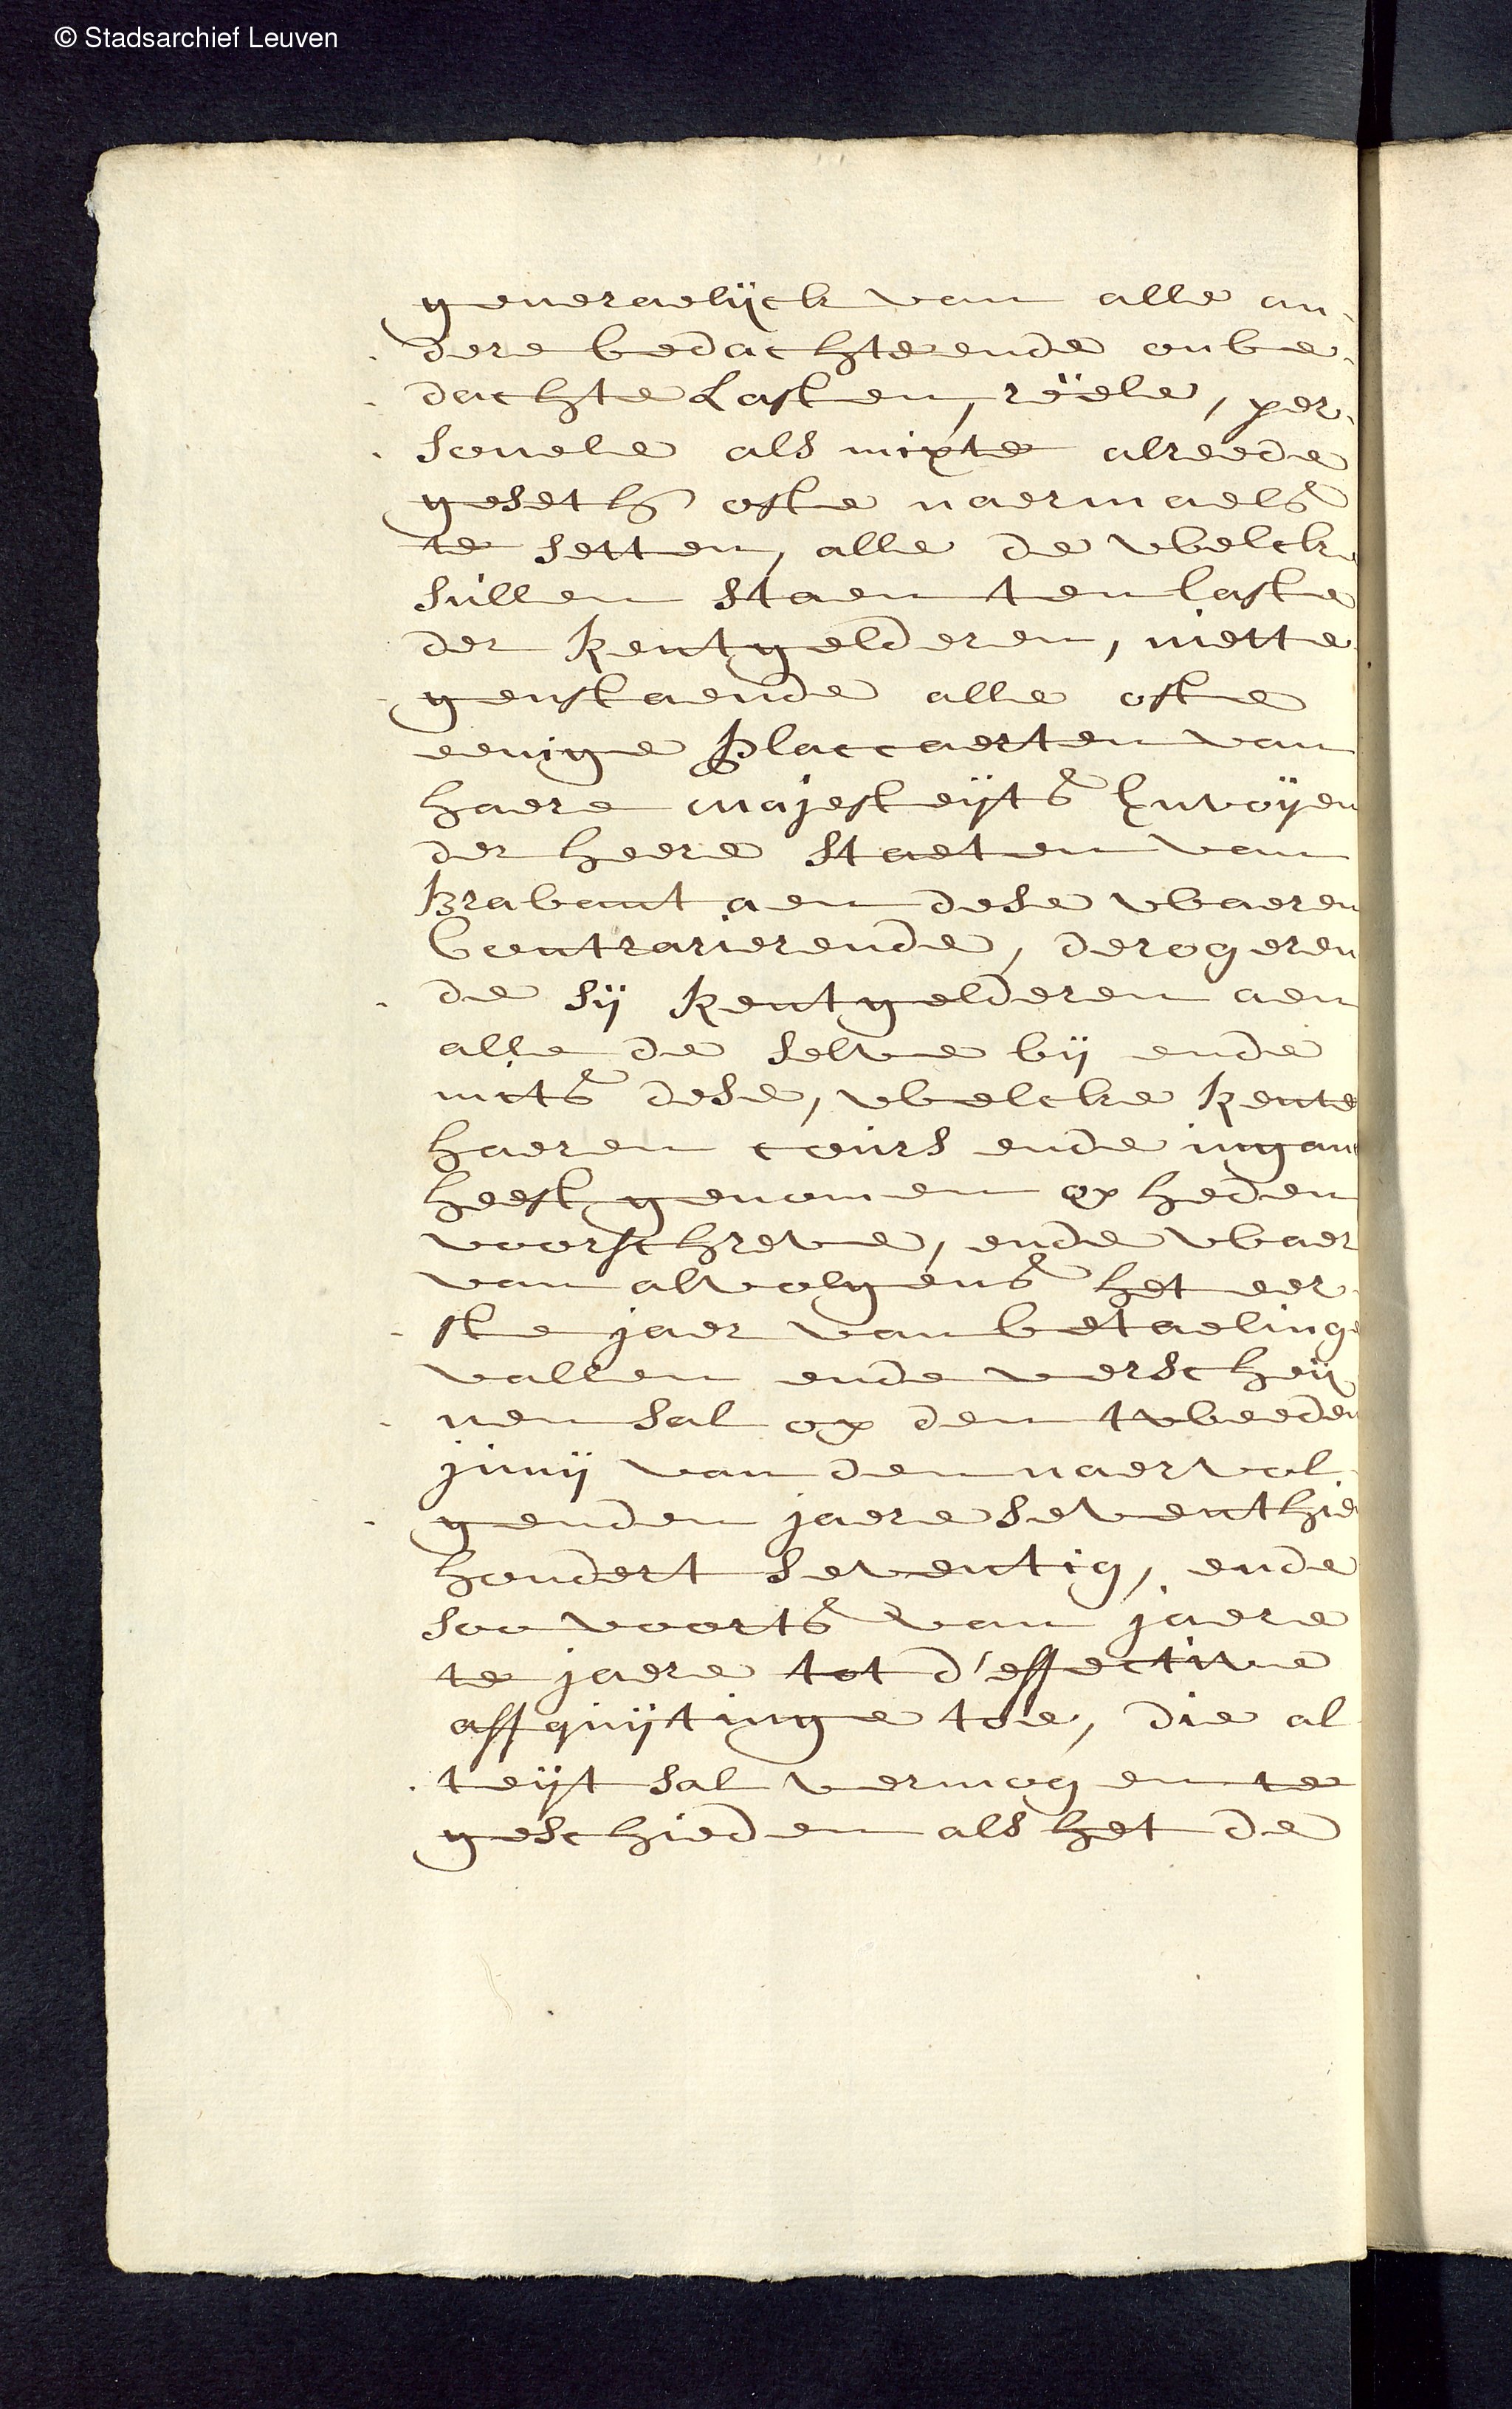 © Stadsarchief Leuven
generaelijck van alle an-
dere bedachte ende onbe-
dachte Lasten, rëele, per-
sonele als mixte alreede
geseth ofte naermaels
te setten, alle de welcke
sullen staen ten laste
der Rentgelderen, niette
genstaende alle ofte
eenige placcaerten van
haere majesteyts Envoÿen
der heere staeten van
Brabant aen dese waeren
Contrarierende, derogeren
de sij Rentgelderen aen
alle de selve bij ende
mits dese, welcke Rente
haeren cours ende ingan
heeft genomen op heden
voorschreve, ende waer
van alvolgens het eer-
ste jaer van betaelinge
vallen ende verscheÿ-
nen sal op den tweeden
junij van den naervol-
genden jaere seventhie
hondert seventig, ende
soo voorts van jaere
te jaere tot d'effective
affquijtinge toe, die al-
teijt sal vermogen te
geschieden als het de